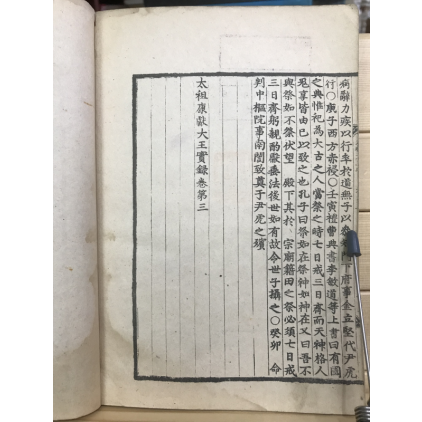 病辭力疾以行卒於道無子以
府事金立堅代尹虎
行○庚子西方赤祲○壬寅禮曹典書李敏道等上書曰有國
之典惟祀爲大古之人當祭之時七日戒三日齋而天神格人
鬼享皆由己以致之也孔子曰祭如在祭神如神在又曰吾不
與祭如不祭伏望 殿下其於 宗廟籍田之祭必須七日戒
三日齋躬親酌獻委法後世如有故令世子攝之○癸卯 命
判中樞院事南誾致奠于尹虎之殯
太祖康獻大王實錄卷第三